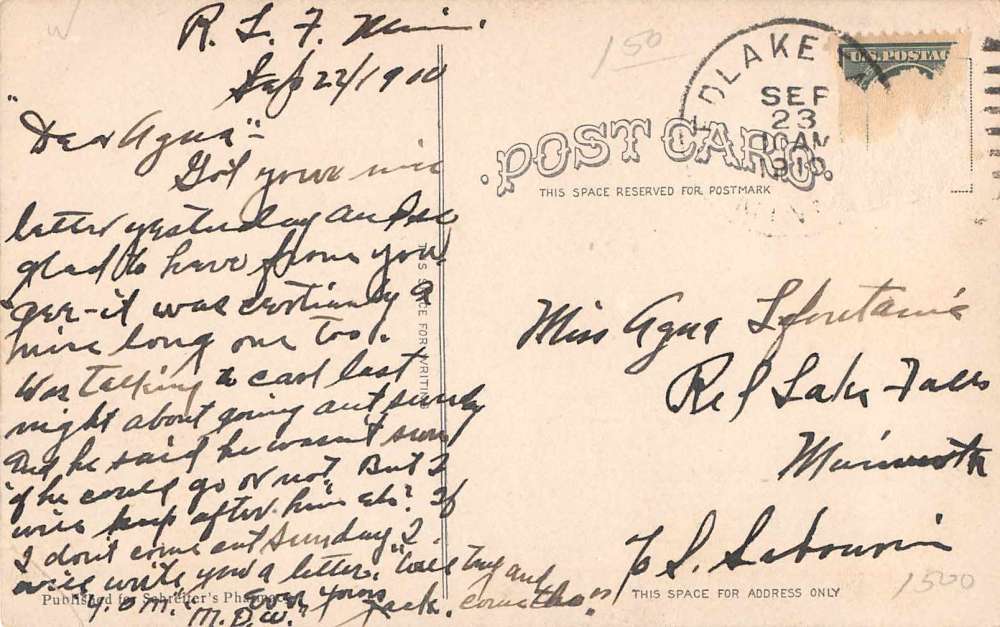 R. L. F. Minn.
Sep 22/1910
"Dear Agna"-
Got your nice
letter yesterday and so
glad to have from you
gee-it was certianly a
nice long one too.
Was talking to carl last
night about going out sunday
and he said he wasn't sure
if he could go or not. But I
will keep after him eh? If
I don't come out Sunday I
will write you a letter. "Will try and
come tho"
Yours
Jack.
"M.D.W."
150
REDLAKE
SEP
23
10 AM
1910
MINN
U.S. POSTAG
POST CARD
THIS SPACE RESERVED FOR POSTMARK
THIS SPACE FOR WRITING
Miss Agna
Red Lake Falls
Minnesota
1500
THIS SPACE FOR ADDRESS ONLY
Published for Schreiter's Pharmacy